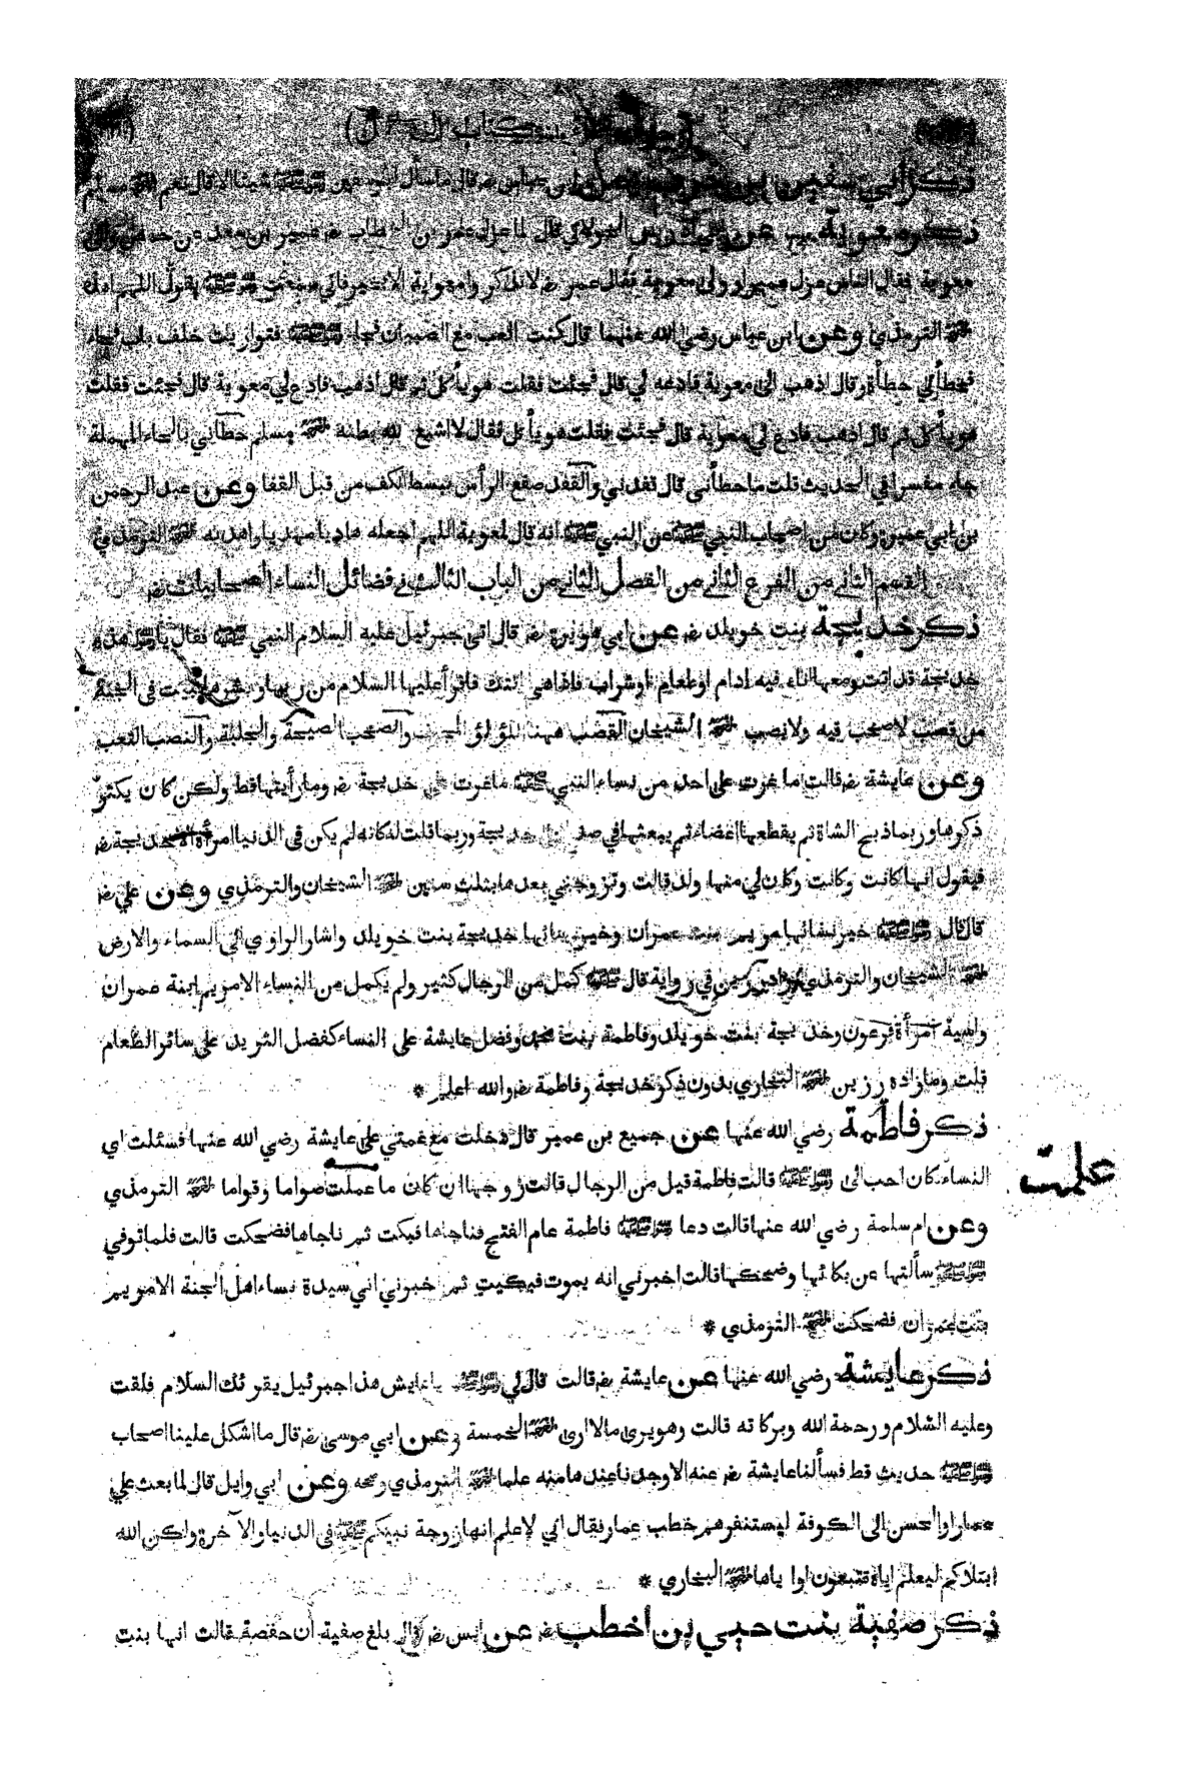 ذكر أبي سفين بن ابن عباس رضه قال ما سأل شيئا الا قال نعم
ذكر معوية رضه عن الخولاني قال لما عزل عمر بن الخطاب رضه عمير بن سعد عن حمص وولى
معوية فقال الناس عزل عميرا وولى معوية فقال عمير رضه لا تذكروا معوية الا بخير فاني سمعت ﷺ يقول اللهم اهد به
الترمذي وعن ابن عباس رضي الله عنهما قال كنت العب مع الصبيان فجاء ﷺ فتواريت خلف باب فجاء
فحطأني حطأة وقال اذهب الى معوية فادعه لي قال فجئت فقلت هو يأكل ثم قال اذهب فادع لي معوية قال فجئت فقلت
هو يأكل ثم قال اذهب فادع لي معوية قال فجئت فقلت هو يأكل فقال لا اشبع الله بطنه مسلم حطأني بالحاء المهملة
جاء مفسرا في الحديث قلت ما حطأني قال قفدني والقفد صفع الرأس ببسط الكف من قبل القفا وعن عبد الرحمن
بن ابي عميرة وكان من اصحاب النبي ﷺ عن النبي ﷺ انه قال لمعوية اللهم اجعله هاديا مهديا واهد به الترمذي
القسم الثاني من الفرع الثاني من الفصل الثاني من الباب الثالث في فضائل النساء الصحابيات رضه
ذكر خديجة بنت خويلد رضه عن ابي هريرة رضه قال اتى جبرئيل عليه السلام النبي ﷺ فقال يا رسول الله هذه
خديجة قد اتت ومعها اناء فيه ادام او طعام او شراب فاذا هي اتتك فاقرأ عليها السلام من ربها وبشرها ببيت في الجنة
من قصب لا صخب فيه ولا نصب الشيخان القصب ههنا اللؤلؤ المجوف والصخب الصيحة والجلبة والنصب التعب
وعن عايشة رضه قالت ما غرت على احد من نساء النبي ﷺ ما غرت على خديجة رضه وما رأيتها قط ولكن كان يكثر
ذكرها وربما ذبح الشاة ثم يقطعها اعضاء ثم يبعثها في صدائق خديجة وربما قلت له كانه لم يكن في الدنيا امرأة الا خديجة رضه
فيقول انها كانت وكانت وكان لي منها ولد قالت وتزوجني بعدها بثلث سنين الشيخان والترمذي وعن علي رضه
قال قال ﷺ خير نسائها مريم بنت عمران وخير نسائها خديجة بنت خويلد واشار الراوي الى السماء والارض
الشيخان والترمذي وزاد رزين في رواية قال ﷺ كمل من الرجال كثير ولم يكمل من النساء الا مريم ابنة عمران
واسية امرأة فرعون وخديجة بنت خويلد وفاطمة بنت محمد وفضل عايشة على النساء كفضل الثريد على سائر الطعام
قلت وما زاده رزين البخاري بدون ذكر خديجة وفاطمة رضه والله اعلم *
ذكر فاطمة رضي الله عنها عن جميع بن عمير قال دخلت مع عمتي على عايشة رضي الله عنها فسئلت اي
النساء كان احب الى ﷺ قالت فاطمة قيل من الرجال قالت زوجها ان كان ما عملت صواما وقواما الترمذي
علمت
وعن ام سلمة رضي الله عنها قالت دعا ﷺ فاطمة عام الفتح فناجاها فبكت ثم ناجاها فضحكت قالت فلما توفي
ﷺ سألتها عن بكائها وضحكها قالت اخبرني انه يموت فبكيت ثم اخبرني اني سيدة نساء اهل الجنة الا مريم
بنت عمران فضحكت الترمذي *
ذكر عايشة رضي الله عنها عن عايشة رضه قالت قال لي ﷺ يا عايش هذا جبرئيل يقرئك السلام فقلت
وعليه السلام ورحمة الله وبركاته قالت وهو يرى ما لا ارى الخمسة وعن ابي موسى رضه قال ما اشكل علينا اصحاب
ﷺ حديث قط فسألنا عايشة رضه عنه الا وجدنا عندها منه علما الترمذي وصححه وعن ابي وايل قال لما بعث علي
عمارا والحسن الى الكوفة ليستنفرهم خطب عمار فقال اني لاعلم انها زوجة نبيكم ﷺ في الدنيا والآخرة ولكن الله
ابتلاكم ليعلم اياه تتبعون او اياها البخاري *
ذكر صفية بنت حيي بن أخطب رضه عن انس رضه قال بلغ صفية ان حفصة قالت انها بنت